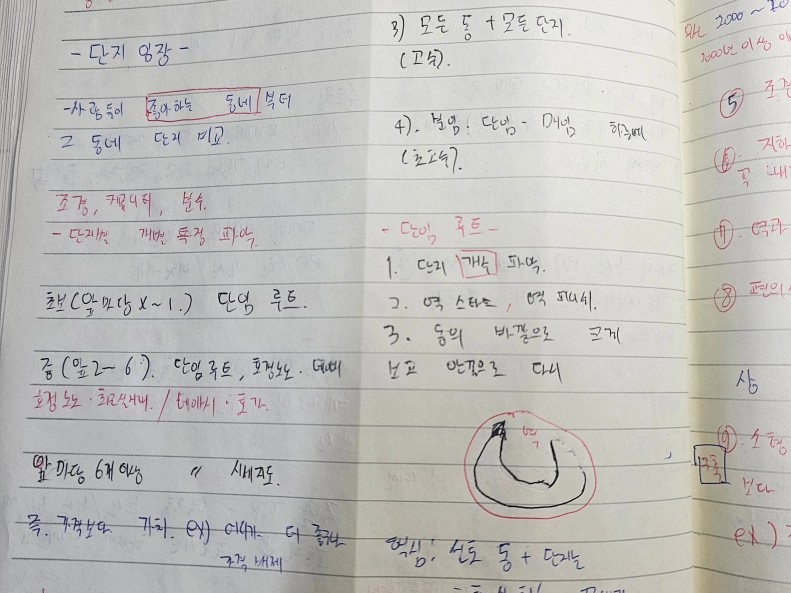 - 단지 임장 -
- 사람들이 좋아하는 동네 부터
그 동네 단지 비교.
조경, 커뮤니티, 분수.
- 단지별 개별 특징 파악.
초보(앞마당 X ~ 1.) 단임 루트.
중 (앞2 ~ 6). 단임루트, 호갱노노. 네이버
호갱노노 · 최고실거래. / 네이버 · 호가.
앞마당 6개이상 〃 시세지도.
즉. 가격보다 가치. ex)
가격 배제
3) 모든 동 + 모든단지.
(고수).
4). 분임. 단임 - 매임 하루에
(초고수).
- 단임 루트 -
1. 단지 개수 파악.
2. 역 스타트, 역 피니쉬.
3. 동의 바깥으로 크게
보고 안쪽으로 다시
역
핵심: 선호 동 + 단지는
2000 ~
2000년 이상
⑤ 조경
⑥ 지하
⑦ 역과
⑧ 편의
상
⑨ 소형
보다
ex)